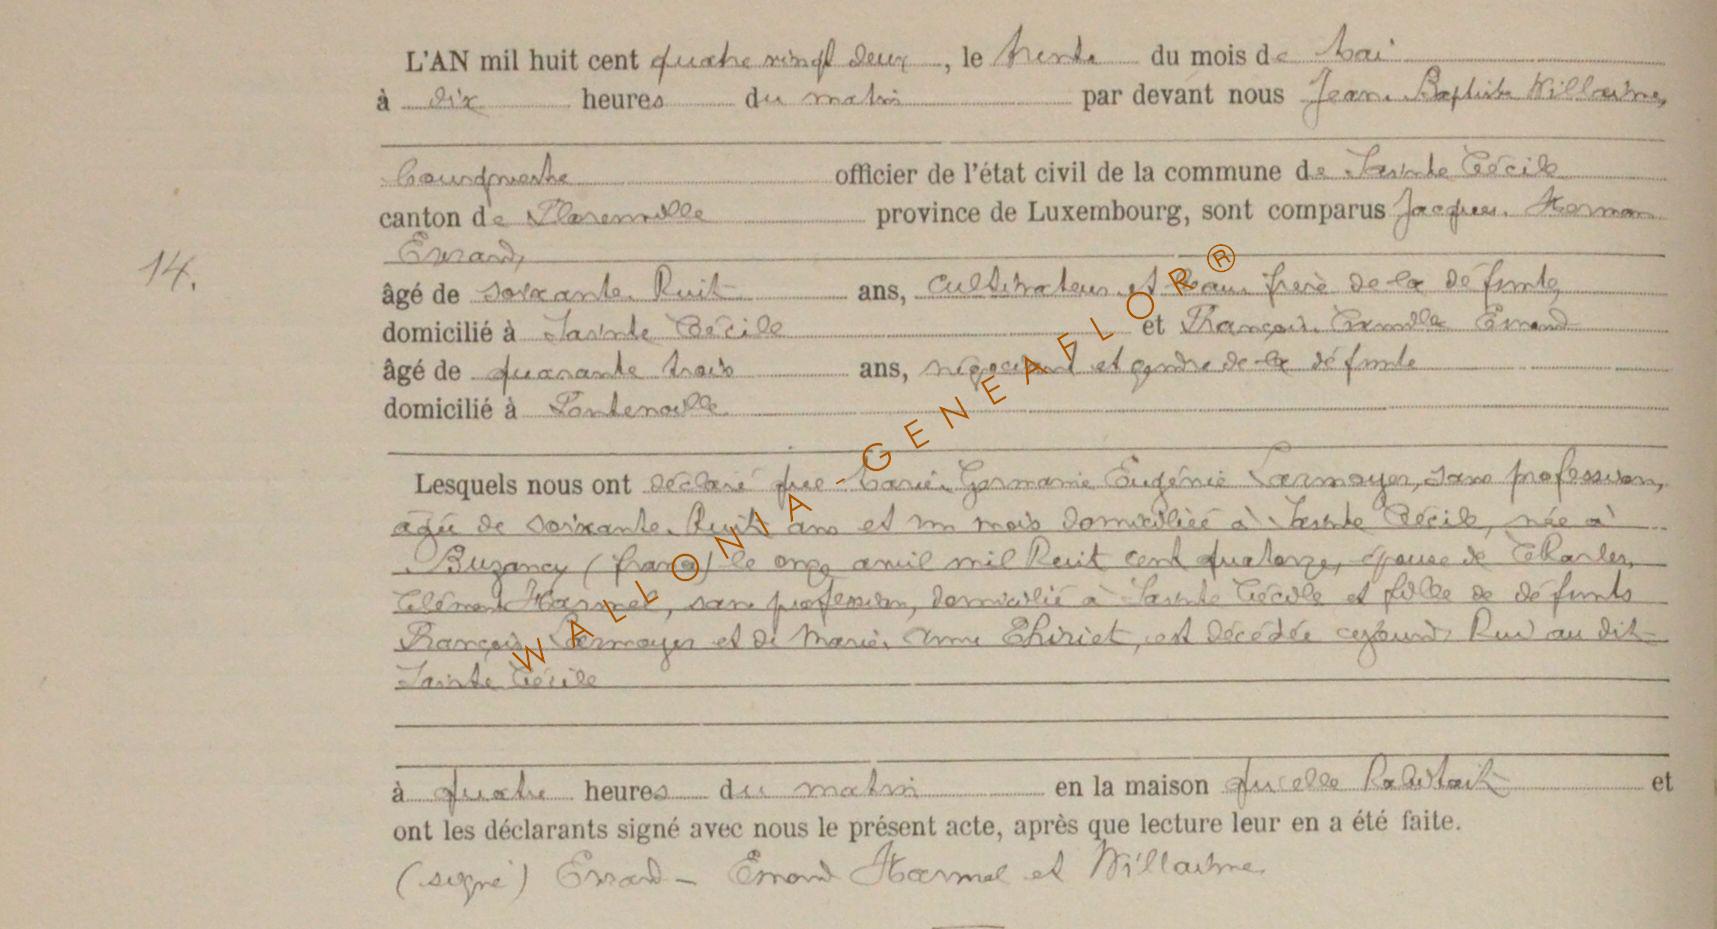 L'AN mil huit cent quatre vingt deux, le trente du mois de Mai
à dix heures du matin par devant nous Jean Baptiste Willaime,
Bourgmestre officier de l'état civil de la commune de Sainte Cécile
canton de Florenville province de Luxembourg, sont comparus Jacques Herman
Errard,
14.
âgé de soixante huit ans, cultivateur et beau frère de la défunte,
domicilié à Sainte Cécile et François Camille Emond
âgé de quarante trois ans, négociant et gendre de la défunte
domicilié à Fontenoille
Lesquels nous ont déclaré que Marie Germanie Eugénie Larmoyer, sans profession,
agée de soixante huit ans et un mois domiciliée à Sainte Cécile, née à
Buzancy (france) le onze avril mil huit cent quatorze, épouse de Charles
Clément Harmel, sans profession, domicilié à Sainte Cécile et fille de défunts
François Larmoyer et de Marie Anne Thiriet, est décédée cejourd'hui au dit
Sainte Cécile
à quatre heures du matin en la maison qu'elle habitait et
ont les déclarants signé avec nous le présent acte, après que lecture leur en a été faite.
(signé) Errard - Emond Harmel et Willaime
WALLONIA-GENEAFLOR®